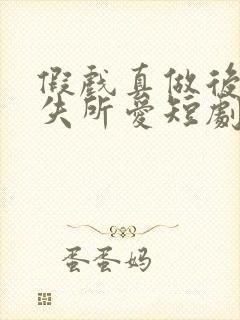 假戲真做後
失所愛短劇
蛋蛋妈